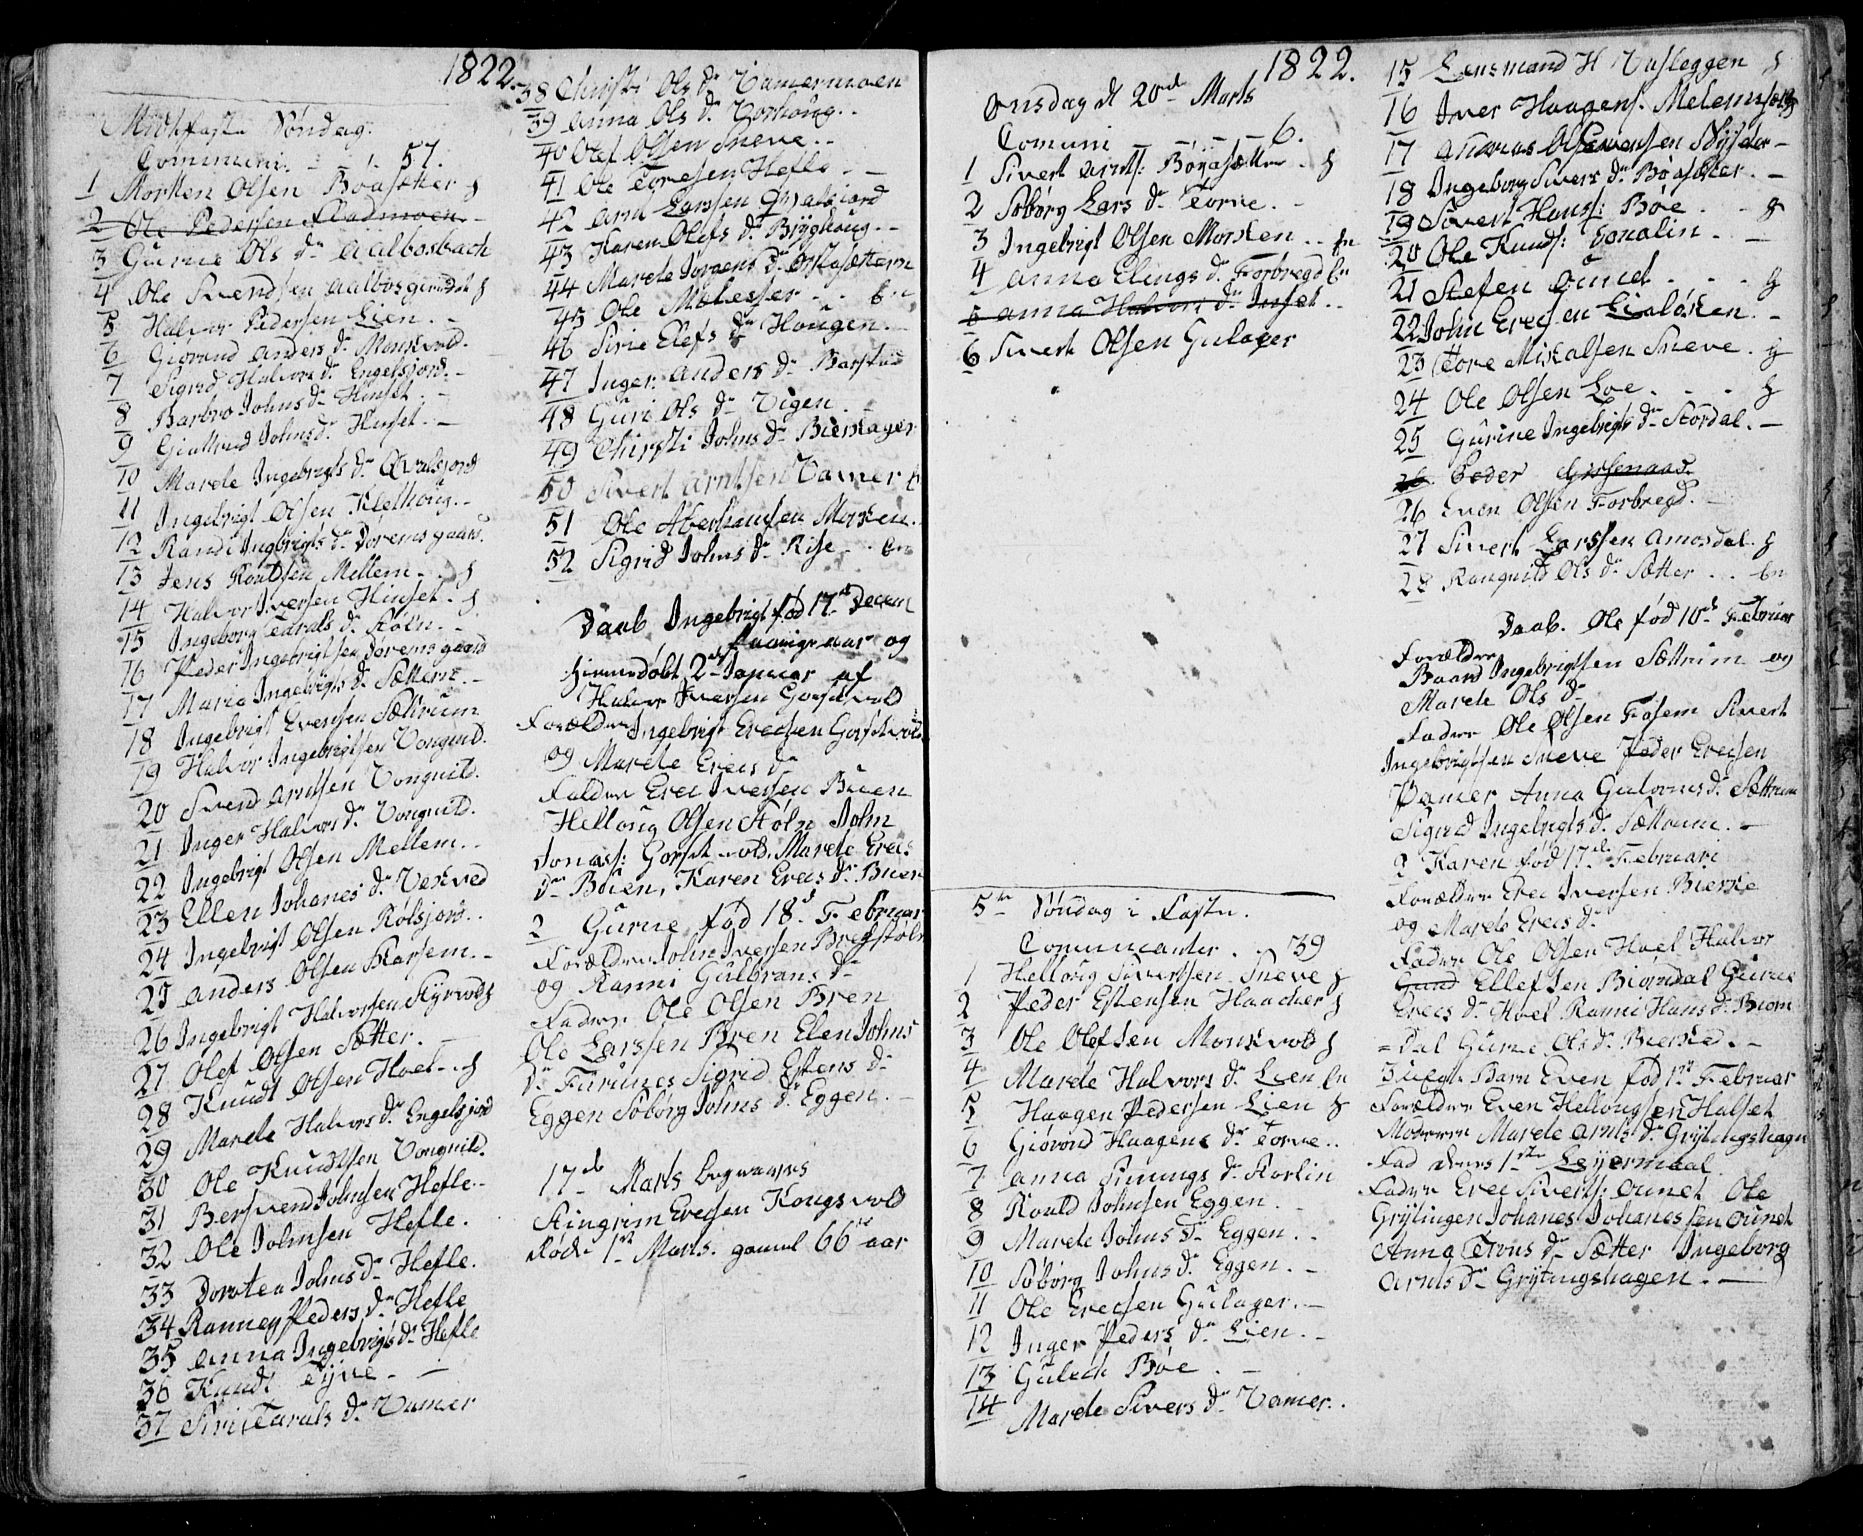 1822.
Midtfaste Søndag.
Communi. - - 57.
1 Morten Olsen Boasæter
2 Ole Pedersen Fladmoen
3 Gurine Ols dr Aalbosbach
4 Ole Svendsen Aalbosgrindet
5 Halvor Pedersen Lien.
6 Giørand Anders dr Monsvold.
7 Sigrid Halvors dr Engelsjord.
8 Barbro Johns dr Hinset.
9 Giertrud Johns dr Hinset.
10 Marele Ingebrigts dr Qvalsjord
11 Ingebrigt Olsen Klethoug.
12 Randi Ingbrigts dr Dørems gaard.
13 Jens Roaldsen Mellem.
14 Halvor Iversen Hinset.
15 Ingeborg Tarals dr Støln.
16 Peder Ingebrigtsen Dørems gaard
17 Maria Ingebrigts dr Sættem.
18 Ingebrigt Evensen Sættrum
19 Halvor Ingebrigtsen Vongnild.
20 Svend Arntsen Vongnild.
21 Inger Halvors dr Vongnild.
22 Ingebrigt Olsen Mellem.
23 Ellen Johanes dr Vekved
24 Ingebrigt Olsen Rølsjord.
25 Anders Olsen Karsem.
26 Ingebrigt Halvorsen Styrvold
27 Olef Olsen Sætter.
28 Knudt Olsen Hoel.
29 Marele Halvors dr Engelsjord
30 Ole Knudtsen Vongnild.
31 Bersvend Johnsen Hefle.
32 Ole Johnsen Hefle.
33 Dorotea Johns dr Hefle.
34 Ranney Peders dr Hefle
35 Anna Ingebrigts dr Hefle
36 Knudt Tyve
37 Siri Tarals dr Vamer
38 Christi Ols dr Vamermoen
39 Anna Ols dr Vorhoug.
40 Olef Olsen Sneve.
41 Ole Toresen Hefle
42 Arnt Larssen Qvalsjord
43 Karen Olefs dr Brÿghoug.
44 Marele Jørgens dr Orkasættern
45 Ole Mølesser
46 Sirie Elefs dr Hougen.
47 Inger Anders dr Barstad
48 Guri Ols dr Vigen
49 Christi Johns dr Bierkager
50 Sivert Arntsen Vamer
51 Ole Abrehamsen Morken.
52 Sigrid Johns dr Rise
Daab Ingebrigt fød 17de Decem
aar og
hiemmedøbt 2den Januar af
Halvor Iversen Gorsetvold
Forældre Ingebrigt Erecsen Gorsetvold
og Marele Erecs dr
Faddre Erec Iversen Buen
Helloug Olsen Støln John
Jonass: Gorsetvold, Marele Erecs
dr Buen, Karen Erecs dr Buen
2 Gurine fød 18de Februar
Forældre John Iversen Brekstøln
og Ranni Gulbrans dr
Faddre Ole Olsen Bren
Ole Larssen Bren Elen Johns
dr Furunes Sigrid Estens dr
Eggen Søborg Johns dr Eggen.
17de Marts begraves
Stingrim Erecsen Kongsvold
døde 1ste Marts. gamel 66 aar
1822.
Onsdag d 20de Marts
Comuni - - - 6.
1 Sivert Arnts: Bøyasætter.
2 Søborg Lars dr Torve.
3 Ingebrigt Olsen Morken
4 Anna Elings dr Forbregd
5 Anna Halvors dr Inset
6 Sivert Olsen Gulager
5te Søndag i Faste.
Communicanter. 39
1 Helloug Sivertsen Sneve
2 Peder Estensen Haacker
3 Ole Olefsen Monsvold
4 Marele Halvors dr Lien
5 Haagen Pedersen Lien
6 Giørond Haagens dr Torve
7 Anna Simings dr Storlin
8 Roald Johnsen Eggen
9 Marele Johns dr Eggen
10 Søborg Johns dr Eggen.
11 Ole Erecsen Gulager.
12 Inger Peders dr Lien.
13 Gulech Bøe
14 Marele Sivers dr Vamer.
15 Lensmand H Vasleggen
16 Iver Haagens. Melemsæter
17 Evensen
18 Ingeborg Sivers dr Bøasæter.
19 Sivert Hanss: Bøe
20 Ole Knuds: Donalin
21 Stefen Ounet
22 John Erecsen Lialøken.
23 Tore Mikalsen Sneve.
24 Ole Olsen Loe.
25 Gurine Ingebrigts dr Stordal.
26 Peder Gisenaas.
26 Even Olsen Forbregd.
27 Sivert Larssen Amosdal.
28 Rangnild Ols dr Sætter
Daab. Ole fød 10de Februar
Forældre
Baard Ingebrigtsen Sættrum og
Marele Ols dr
Faddre Ole Olsen Fosem Sivert
Ingebrigtsen Sneve Peder Erecsen
Vamer Anna Gulovns dr Sættrum
Sigrid Ingebrigts dr Sættrum.
2 Karen fød 17de Februari
Forældre Erec Iversen Bierke
og Marele Erecs dr
Faddre Ole Olsen Hoel Halvor
Gund Ellefsen Biørndal Gurine
Erecs dr Hoel Ranni Hans dr Biørn
=dal Gurine Ols dr
3 uegte Barn Even fød 1ste Februar
Forældre Even Hellougsen Halset
Moderen Marele Arnts dr Grÿtingshagen
Fad deres 1ste Leyermaal
Faddre Erec Siverts: Ounet Ole
Grÿtingen Johanes Johanessen Ounet
Anna Trons dr Sætter Ingeborg
Arnts dr Grÿtingshagen.